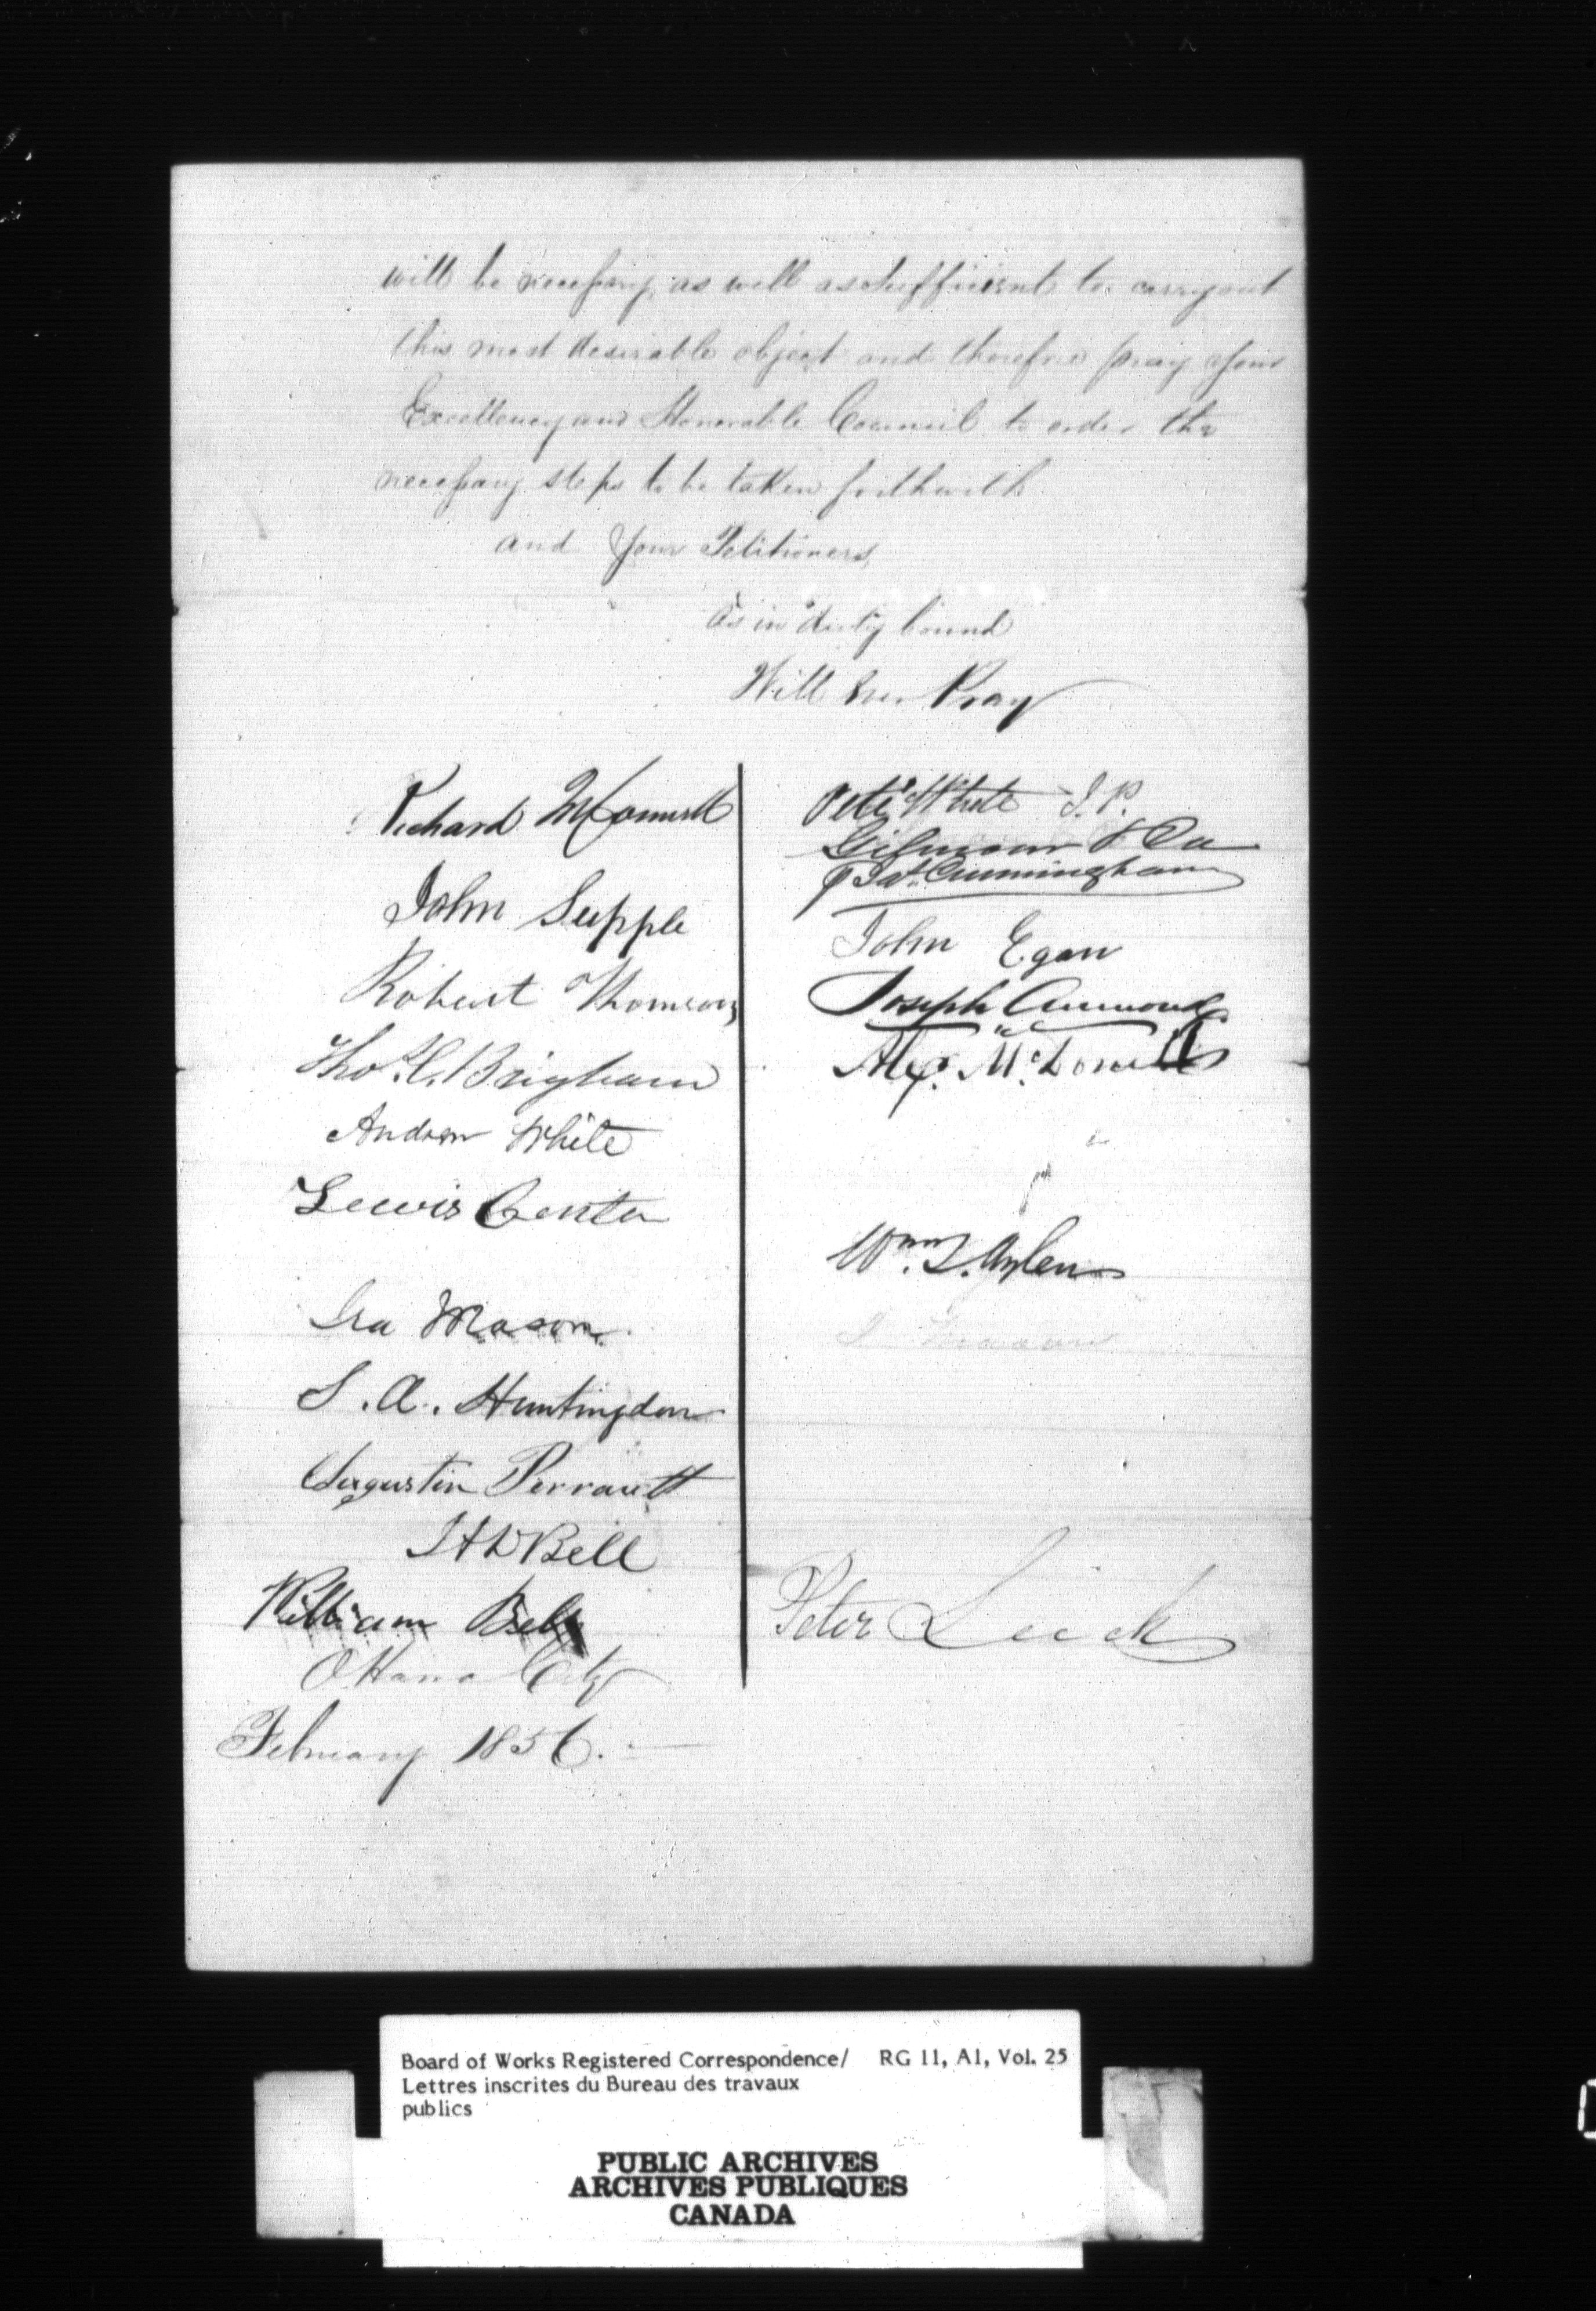 will be necessary, as well as sufficient to carry out
this most desirable object and therefore pray Your
Excellency and Honorable Council to order the
necessary steps to be taken forthwith
and Your Petitioners,
as in duty bound
Will Ever Pray
Richard McConnell
John Supple
Robert Thomson
Thos. C. Brigham
Andrew White
Lewis Center
Ira Mason
S. A. Huntingdon
Augustin Perrault
William Bell
Ottawa City
February 1856.
Peter White J.P.
Gilmour & Co
p Jas. Cunningham
John Egan
Joseph Aumond
Alex. McDonell
Wm. Aylen
Peter
Board of Works Registered Correspondence/ RG 11, A1, Vol. 25
Lettres inscrites du Bureau des travaux
publics
PUBLIC ARCHIVES
ARCHIVES PUBLIQUES
CANADA